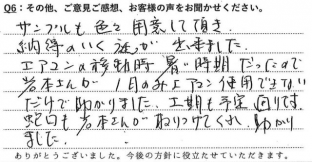 Q6：その他、ご意見ご感想、お客様の声をお聞かせください。
サンプルも色々用意して頂き、
納得のいく が出来ました。
エアコンの移動時 暑い時期だったので
岩本さんが 1日のみエアコン使用できない
だけで助かりました。工期も予定通りです。
蛇口も岩本さんが ねじってくれ、助かり
ました。
ありがとうございました。今後の方針に役立たせていただきます。